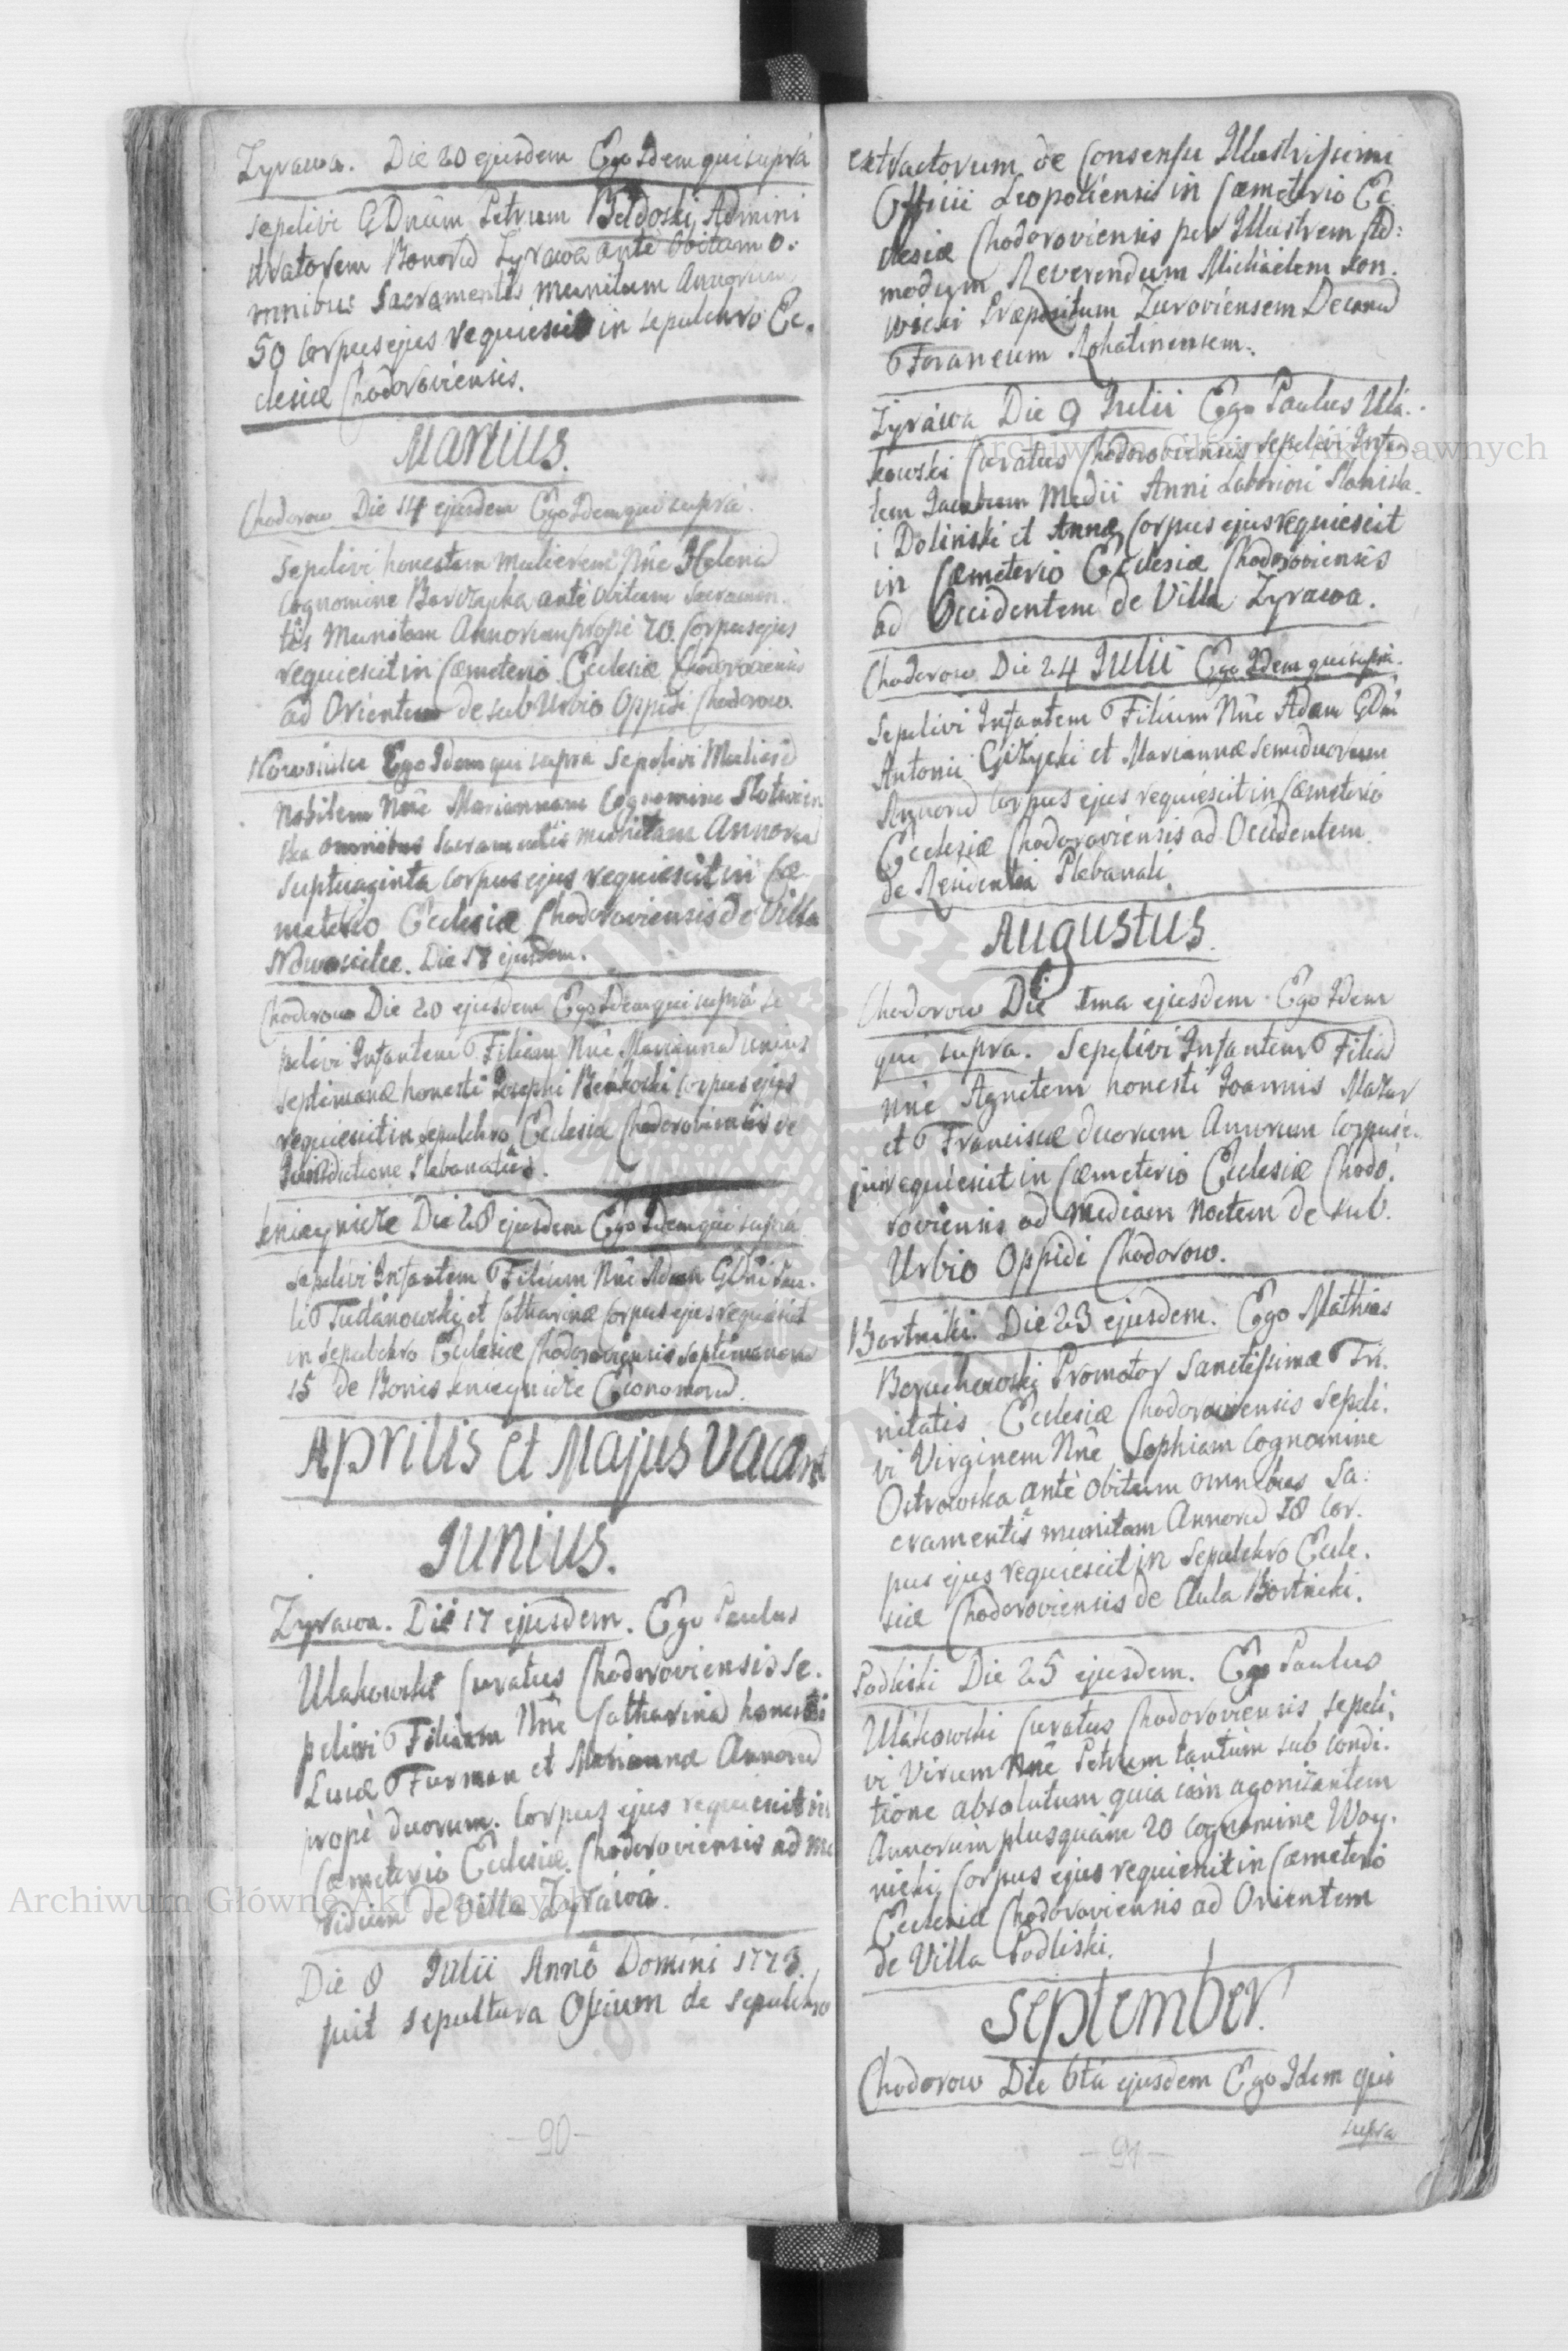 Zyrawa. Die 20 ejusdem Ego Idem qui suprà
sepelivi GDnûm Petrum Administ
tratorem Bonorũ Zyrawa ante Obitum o.
mnibus Sacramentîs munitum Annorum
50 Corpus ejus requiescit in sepulchro Ec.
clesiæ Chodoroviensis.
Martius.
Chodorow Die 14 ejusdem Ego Idem qui suprà.
Sepelivi honestam mulierem Nñe Helenã
Cognomine antè obitum Sacramen.
tîs Munitam Annorum propè 70. Corpus ejus
requiescit in Cæmeterio Ecclesiæ Chodoroviensis
ad Orientem de subUrbio Oppidi Chodorow.
Ego Idem qui supra Sepelivi Mulierẽ
Nobilem Nñe Mariannam Cognomine Slotwin
ska omnibus Sacramentis munitam Annorũ
Septuaginta Corpus ejus requiescit in Cæ
meterio Ecclesiæ Chodoroviensis de Villa
Die 17 ejusdem.
Chodorow Die 20 ejusdem Ego Idem qui suprà se
pelivi Infantem Filiam Nñe Mariannã unius
septimanæ honesti Josephi Corpus ejus
requiescit in sepulchro Ecclesiæ Chodoroviensis de
Jurisdictione Plebanali.
Die 28 ejusdem Ego Idem qui supra
Sepelivi Infantem Filium Nñe Adam GDñi Pau.
li et Catharinæ Corpus ejus requiescit
in sepulchro Ecclesiæ Chodoroviensis septimanarũ
15 de Bonis
Aprilis et Majus Vacant
Junius.
Zyrawa. Die 17 ejusdem. Ego Paulus
Ulakowski Curatus Chodoroviensis se.
pelivi Filiam Nñe Catharinã honesti
Lucæ Furman et Mariannæ Annorũ
propè duorum. Corpus ejus requiescit in
Cæmeterio Ecclesiæ Chodoroviensis ad me
ridiem de Villa Zyráwa.
Die 8 Julii Annô Domini 1773.
fuit sepultura Ossium de sepulchro
90
extractorum de Consensu Illustrissimi
Officii Leopoliensis in Cæmeterio Ec
clesiæ Chodoroviensis per Illustrem Ad:
modum Reverendum Michaelem
Præpositum Zuroviensem Decanũ
Foraneum Rohatinensem.
Zyráwa Die 9 Julii Ego Paulus Ulá.
kowski Curatus Chodoroviensis sepelivi Infan
tem Jacobum Medii Anni Laboriosi Stanisla.
i Dolinski et Annæ Corpus ejus requiescit
in Cæmeterio Ecclesiæ Chodoroviensis
ad Occidentem de Villa Zyrawa.
Chodorow Die 24 Julii Ego Idem qui supra.
Sepelivi Infantem Filium Nñe Adam GDñi
Antonii Giżycki et Mariannæ semiduorum
Annorũ Corpus ejus requiescit in Cæmeterio
Ecclesiæ Chodoroviensis ad Occidentem
de Residentia Plebanali.
Augustus.
Chodorow Die 1ma ejusdem Ego Idem
qui supra. Sepelivi Infantem Filiã
Nñe Agnetem honesti Joannis Mazur
et Franciscæ duorum Annorum Corpus e.
jus requiescit in Cæmeterio Ecclesiæ Chodo.
roviensis ad mediam Noctem de sub.
Urbio Oppidi Chodorow.
Bortniki. Die 23 ejusdem. Ego Mathias
Promotor Sanctissimæ Tri.
nitatis Ecclesiæ Chodoroviensis sepeli.
vi Virginem Nñe Sophiam Cognomine
Ostrowska antè Obitum omnibus Sa:
cramentîs munitam Annorũ 18 Cor.
pus ejus requiescit in Sepulchro Eccle.
siæ Chodoroviensis de Aula Bortniki.
Podliski Die 25 ejusdem. Ego Paulus
Ulákowski Curatus Chodoroviensis sepeli.
vi Virum Nñe Petrum tantùm sub condi.
tione absolutum quia iàm agonizantem
Annorum plusquàm 20 Cognomine Woy.
nicki Corpus ejus requiescit in Cæmeterio
Ecclesiæ Chodoroviensis ad Orientem
de Villa Podliski.
September.
Chodorow Die 6ta ejusdem Ego Idem qui
supra
91
Archiwum Główne Akt Dawnych
Archiwum Główne Akt Dawnych